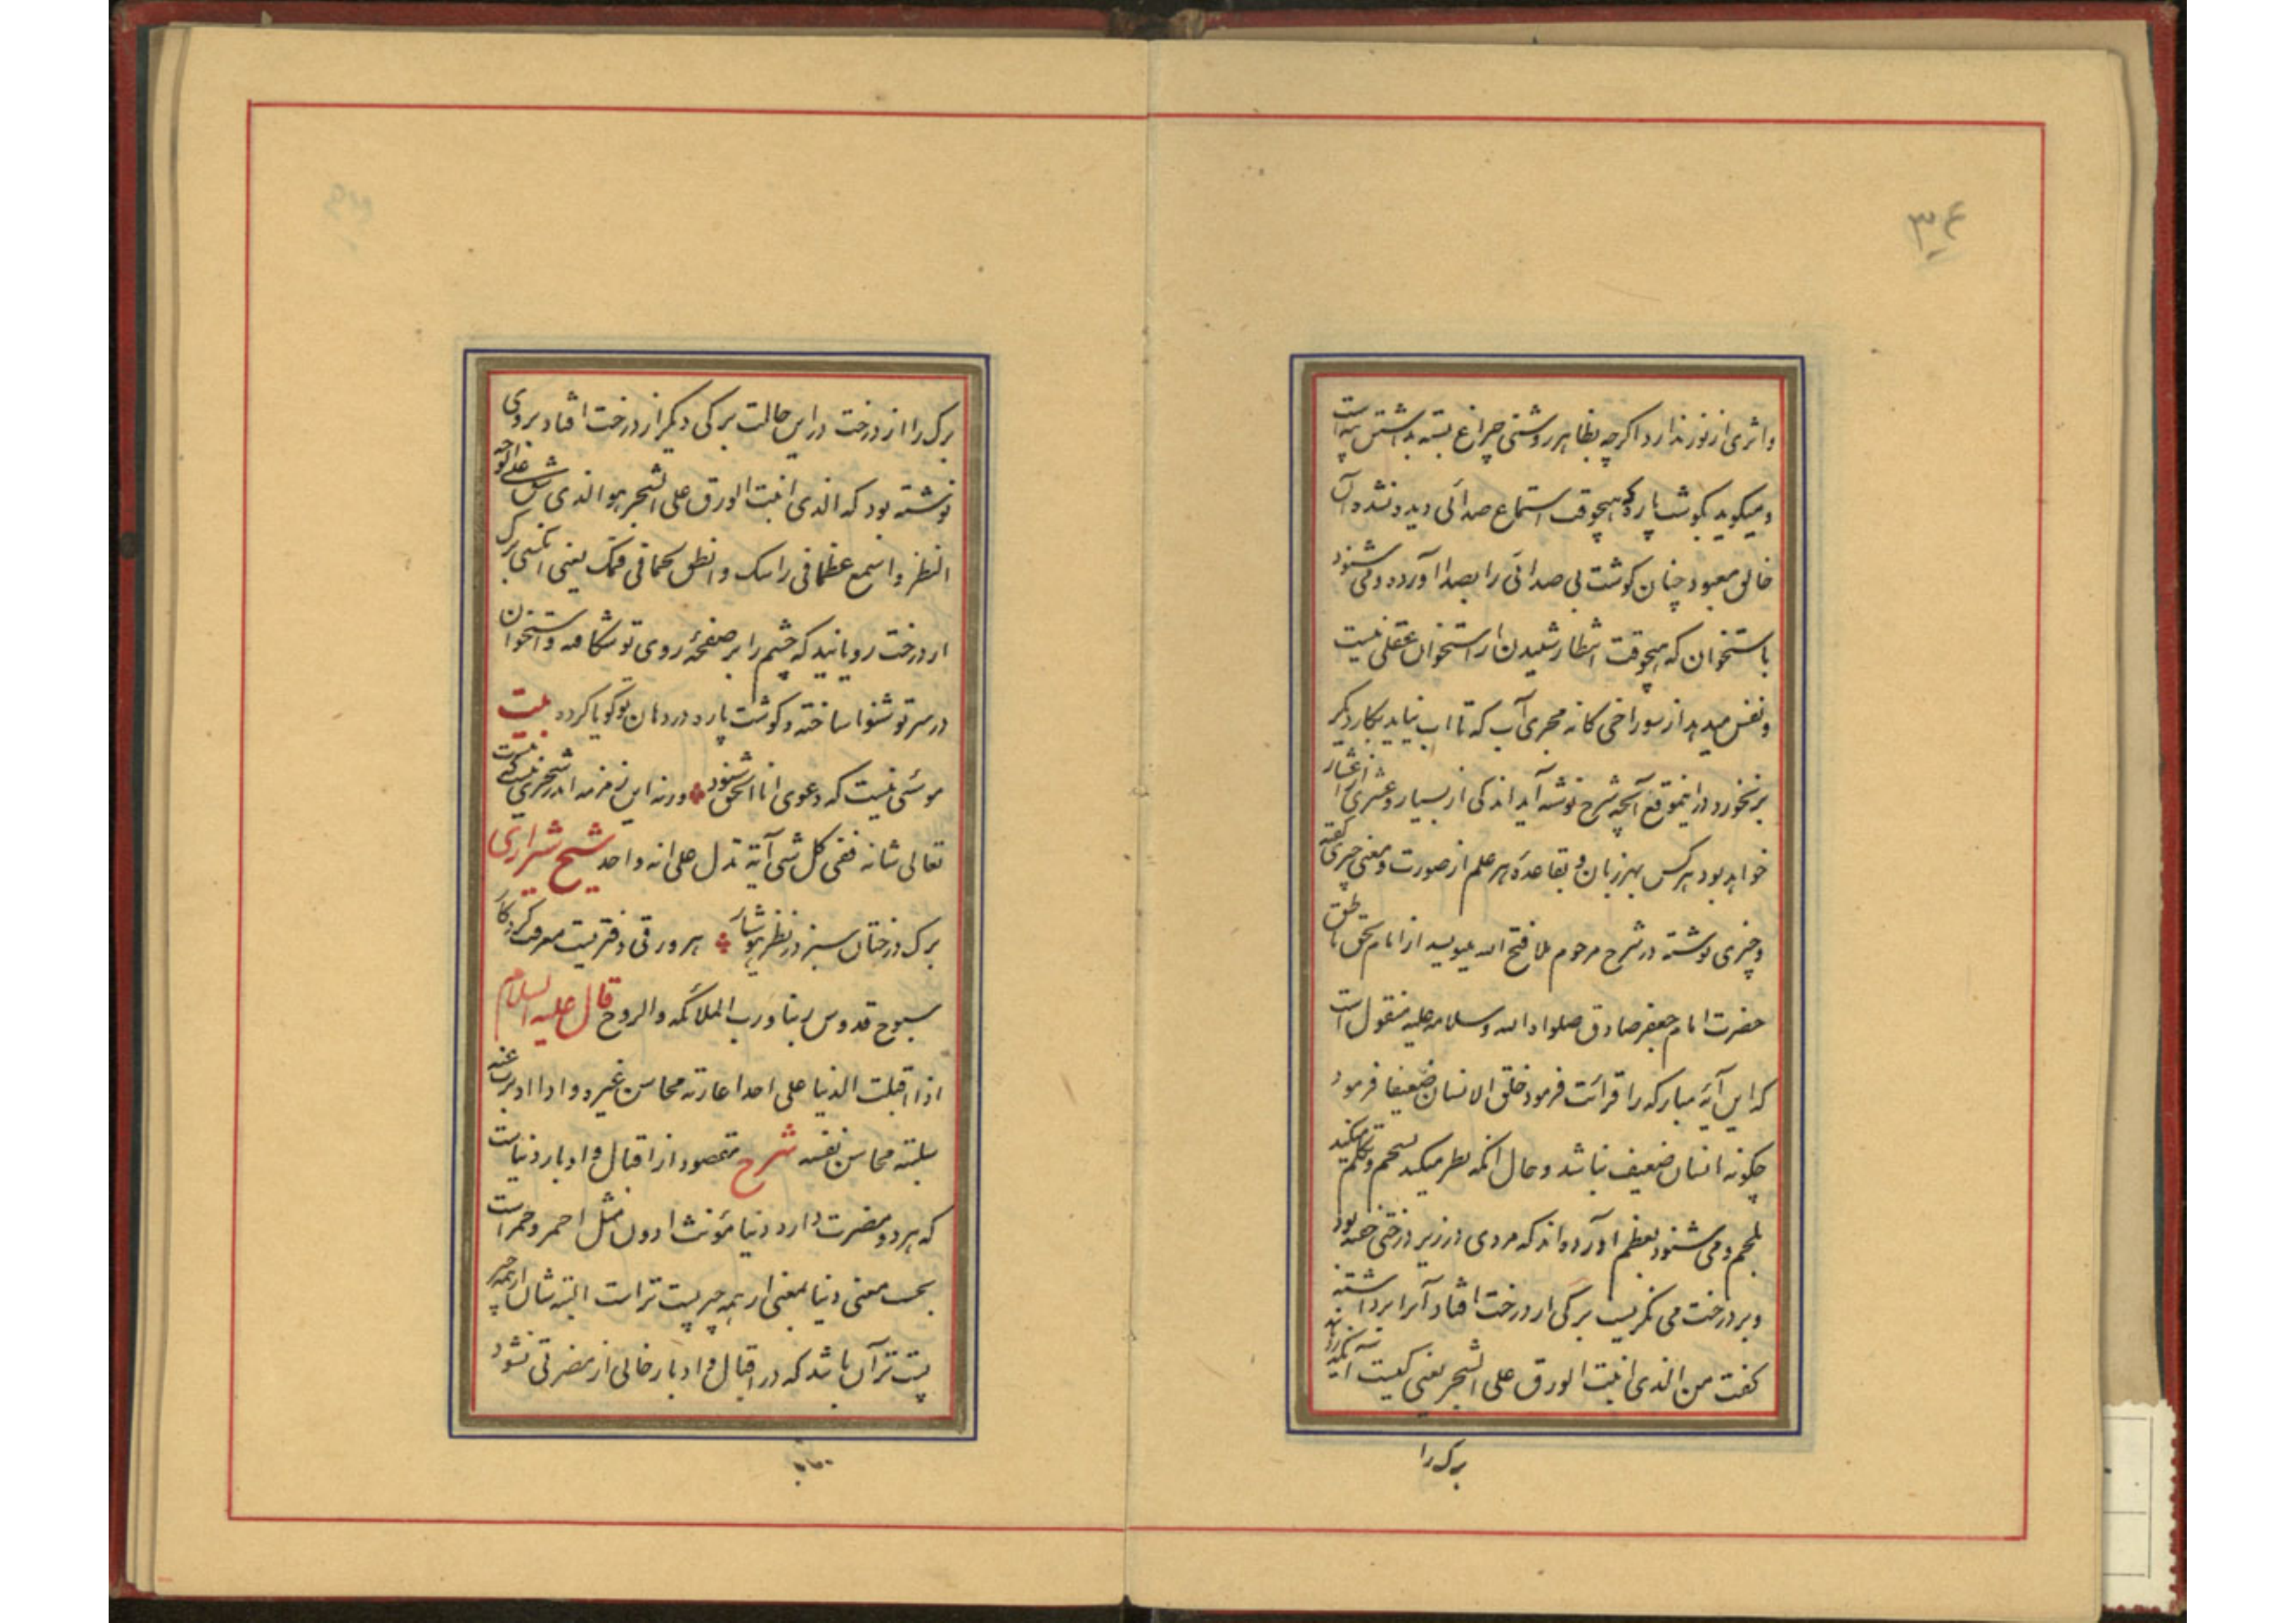 ۳۴
واثری از نور ندارد اگرچه بظاهر روشنی چراغ بسته بداشتن پیه است
و میگوید بگوشت پاره که هیچوقت استماع صدائی دیده نشده آن
خالق معبود چنان گوشت بی صدائی را بصدا آورده و می شنود
باستخوان که هیچوقت انتظار شنیدن از استخوان عقلی نیست
و نفس میدهد از سوراخی کانه مجری آب که تا آب نیاید بکار دیگر
برنخورد در اینموقع آنچه شرح نوشته آید اندکی از بسیار و عشری از اعشار
خواهد بود هرکس بهر زبان و بقاعده هر علم از صورت و معنی چیزی گفته
و چیزی نوشته در شرح مرحوم ملا فتح الله مینویسد از امام بحق ناطق
حضرت امام جعفر صادق صلوات الله و سلامه علیه منقول است
که این آیه مبارکه را قرائت فرمود خلق الانسان ضعیفا فرمود
چگونه انسان ضعیف نباشد و حال آنکه نظر میکند بشحم و تکلم میکند
بلحم و می شنود بعظم آورده اند که مردی در زیر درختی خفته بود
و بر درخت می نگریست برگی از درخت افتاد آنرا برداشته
گفت من الذی انبت الورق علی الشجر یعنی کیست آنکه رویانید
برک را
برک را از درخت در این حالت برکی دیگر از درخت افتاد بروی
نوشته بود که الذی انبت الورق علی الشجر هو الذی شق علی الوجه
النظر و اسمع عظما فی راسک و انطق لحما فی فمک یعنی آنکسی برک
از درخت رویانید که چشم را بر صفحه روی تو شکافته و استخوان
در سر تو شنوا ساخته و گوشت پاره در دهان تو گویا کرده بیت
موسئی نیست که دعوی انا الحق شنود ورنه این زمزمه اندر شجری نیست که نیست
تعالی شانه ففی کل شی آیة تدل علی انه واحد شیخ شیرازی
برک درختان سبز در نظر هوشیار هر ورقی دفتریست معرفت کردگار
سبوح قدوس ربنا و رب الملائکه والروح قال علیه السلام
اذا اقبلت الدنیا علی احد اعارته محاسن غیره و اذا ادبرت عنه
سلبته محاسن نفسه شرح مقصود از اقبال و ادبار دنیاست
که هر دو مضرت دارد دنیا مؤنث ادون مثل احمر و حمراست
بحسب معنی دنیا بمعنی از همه چیز پست تر است البته شان از همه چیز
پست تر آن باشد که در اقبال و ادبار خالی از مضرتی نشود